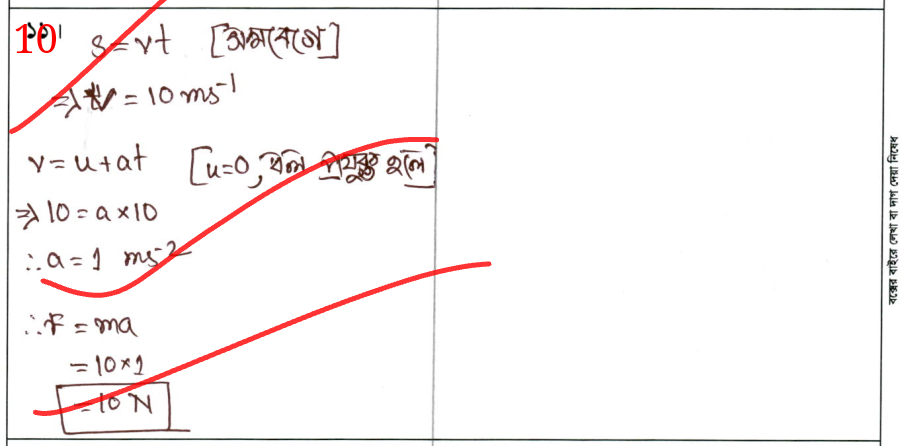 ১১।
10
s = vt [সমবেগে]
⇒ v = 10 ms⁻¹
v = u + at [u=0, বল প্রযুক্ত হলে]
⇒ 10 = a × 10
∴ a = 1 ms⁻²
∴ F = ma
= 10 × 1
= 10 N
বক্সের বাইরে লেখা বা দাগ দেয়া নিষেধ